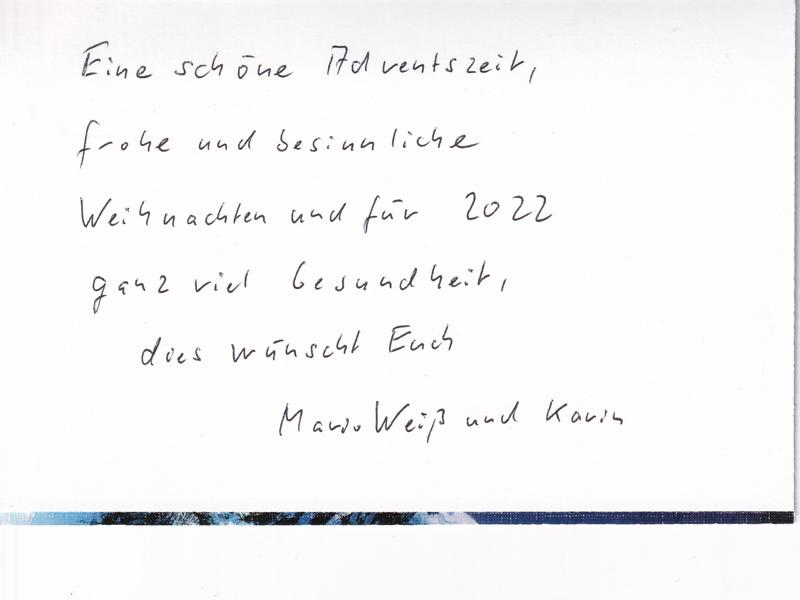 Eine schöne Adventszeit,
frohe und besinnliche
Weihnachten und für 2022
ganz viel Gesundheit,
dies wünscht Euch
Mario Weiß und Karin